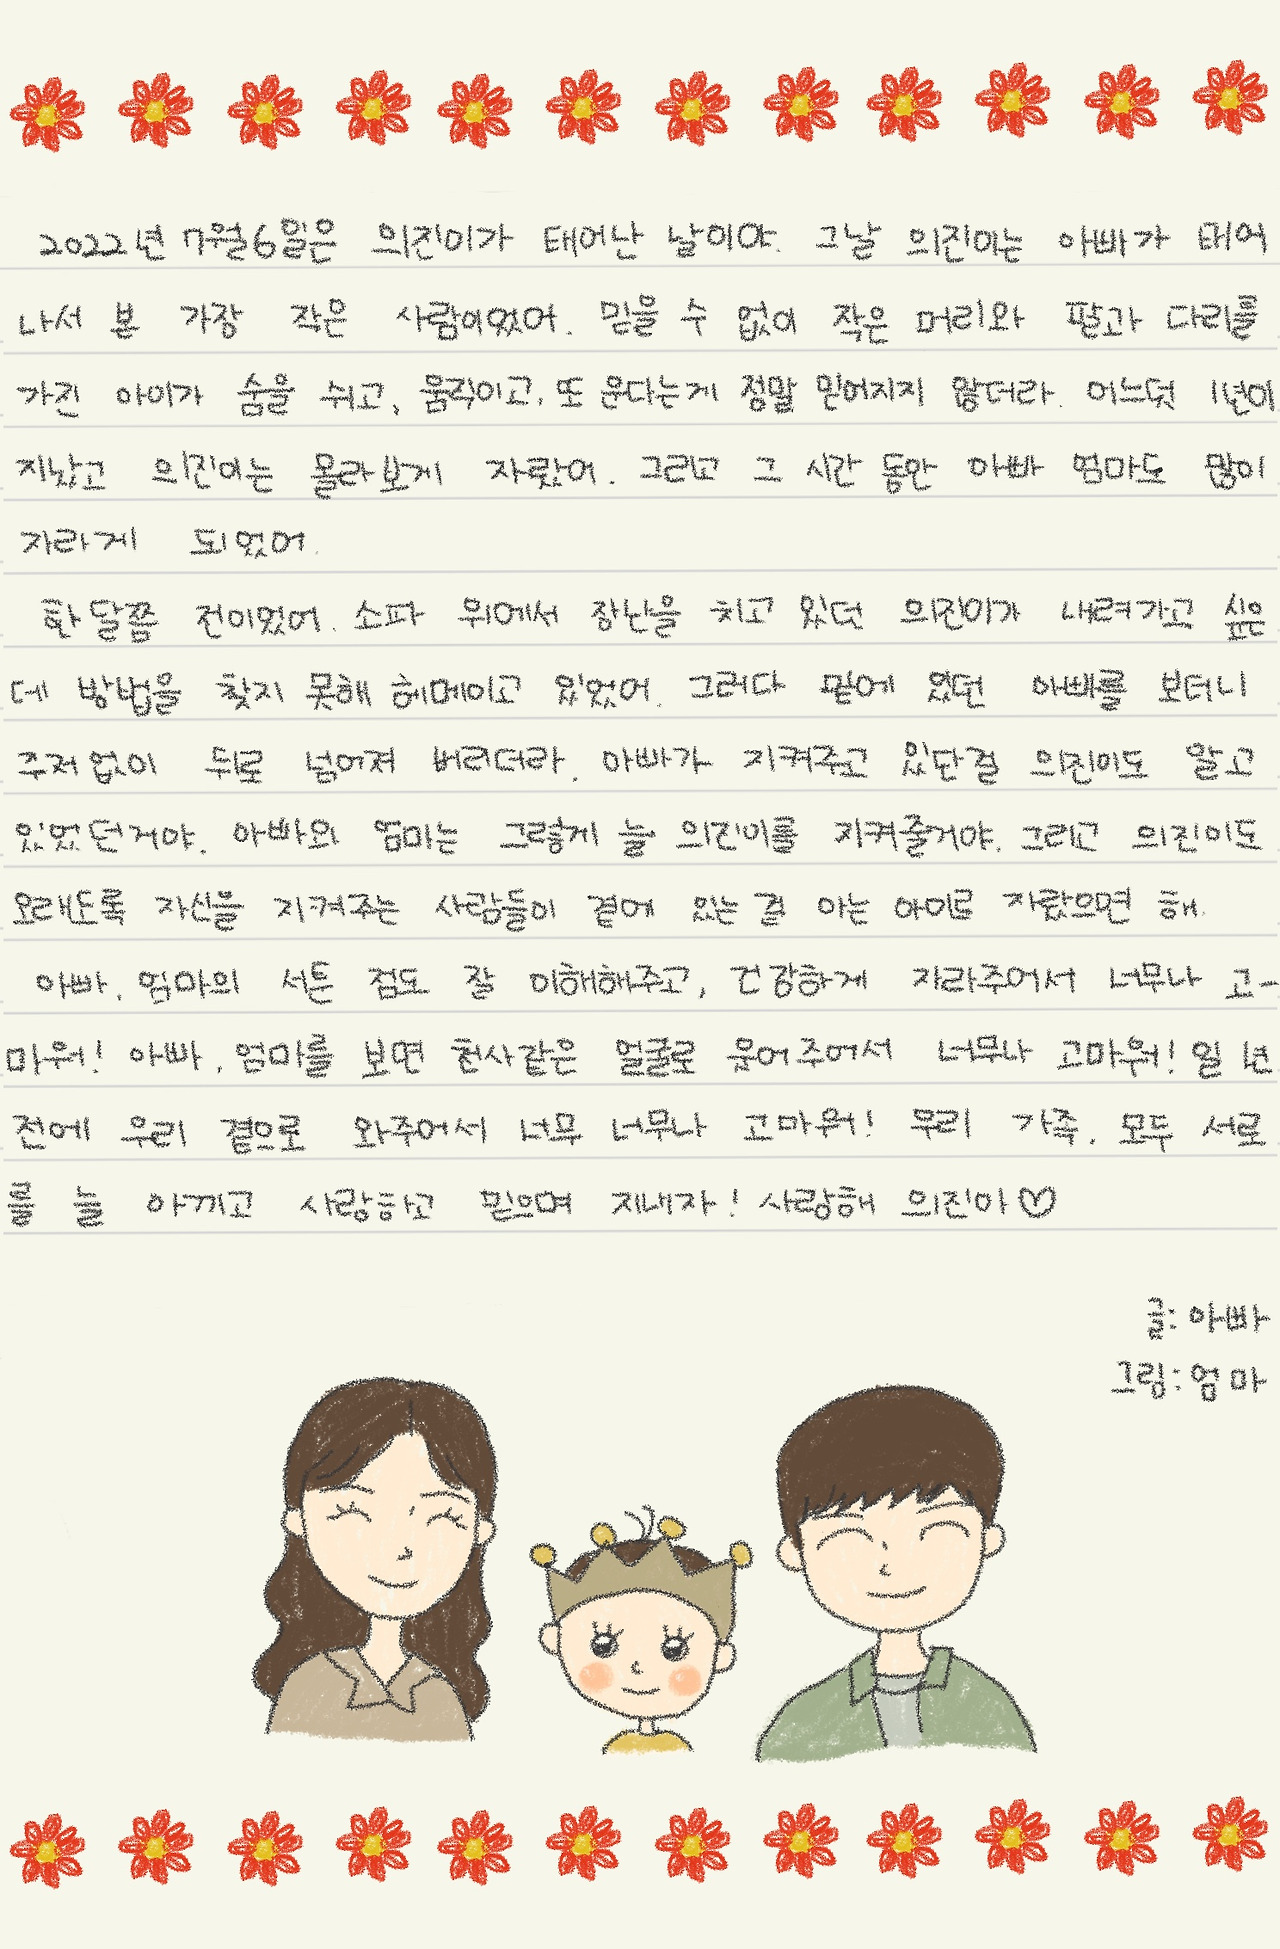 2022년 7월 6일은 의진이가 태어난 날이야. 그날 의진이는 아빠가 태어
나서 본 가장 작은 사람이었어. 믿을 수 없이 작은 머리와 팔과 다리를
가진 아이가 숨을 쉬고, 움직이고, 또 운다는게 정말 믿어지지 않더라. 어느덧 1년이
지났고 의진이는 몰라보게 자랐어. 그리고 그 시간 동안 아빠 엄마도 많이
자라게 되었어.
한 달쯤 전이었어. 소파 위에서 장난을 치고 있던 의진이가 내려가고 싶은
데 방법을 찾지 못해 헤메이고 있었어. 그러다 밑에 있던 아빠를 보더니
주저 없이 뒤로 넘어져 버리더라. 아빠가 지켜주고 있단걸 의진이도 알고
있었던거야. 아빠와 엄마는 그렇게 늘 의진이를 지켜줄거야. 그리고 의진이도
오래도록 자신을 지켜주는 사람들이 곁에 있는 걸 아는 아이로 자랐으면 해.
아빠, 엄마의 서든 점도 잘 이해해주고, 건강하게 자라주어서 너무나 고-
마워! 아빠, 엄마를 보면 천사같은 얼굴로 웃어주어서 너무나 고마워! 일 년
전에 우리 곁으로 와주어서 너무 너무나 고마워! 우리 가족, 모두 서로
를 늘 아끼고 사랑하고 믿으며 지내자! 사랑해 의진아♡
글: 아빠
그림: 엄마